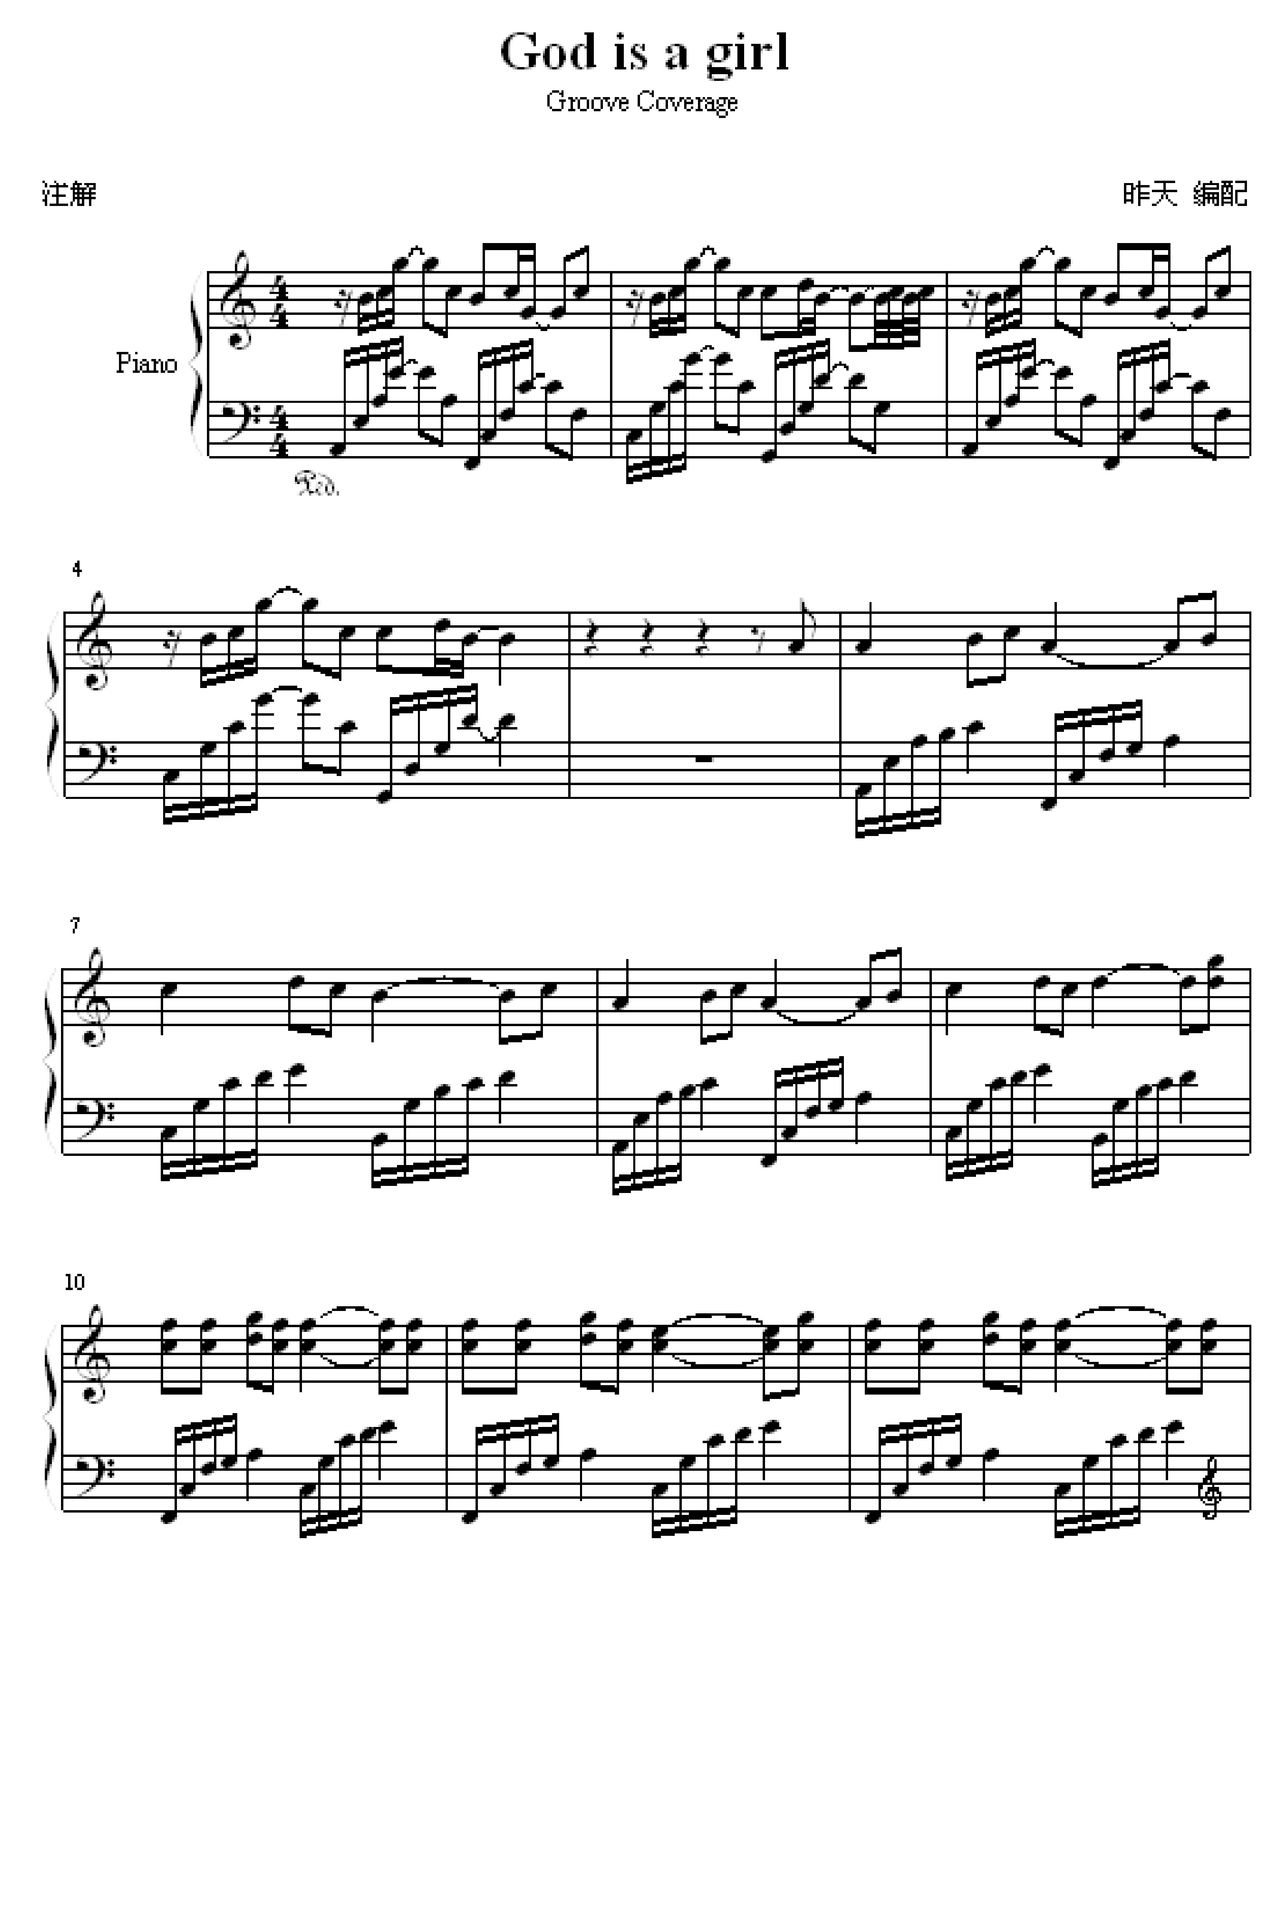 God is a girl
Groove Coverage
注解
昨天 编配
Piano
4
7
10